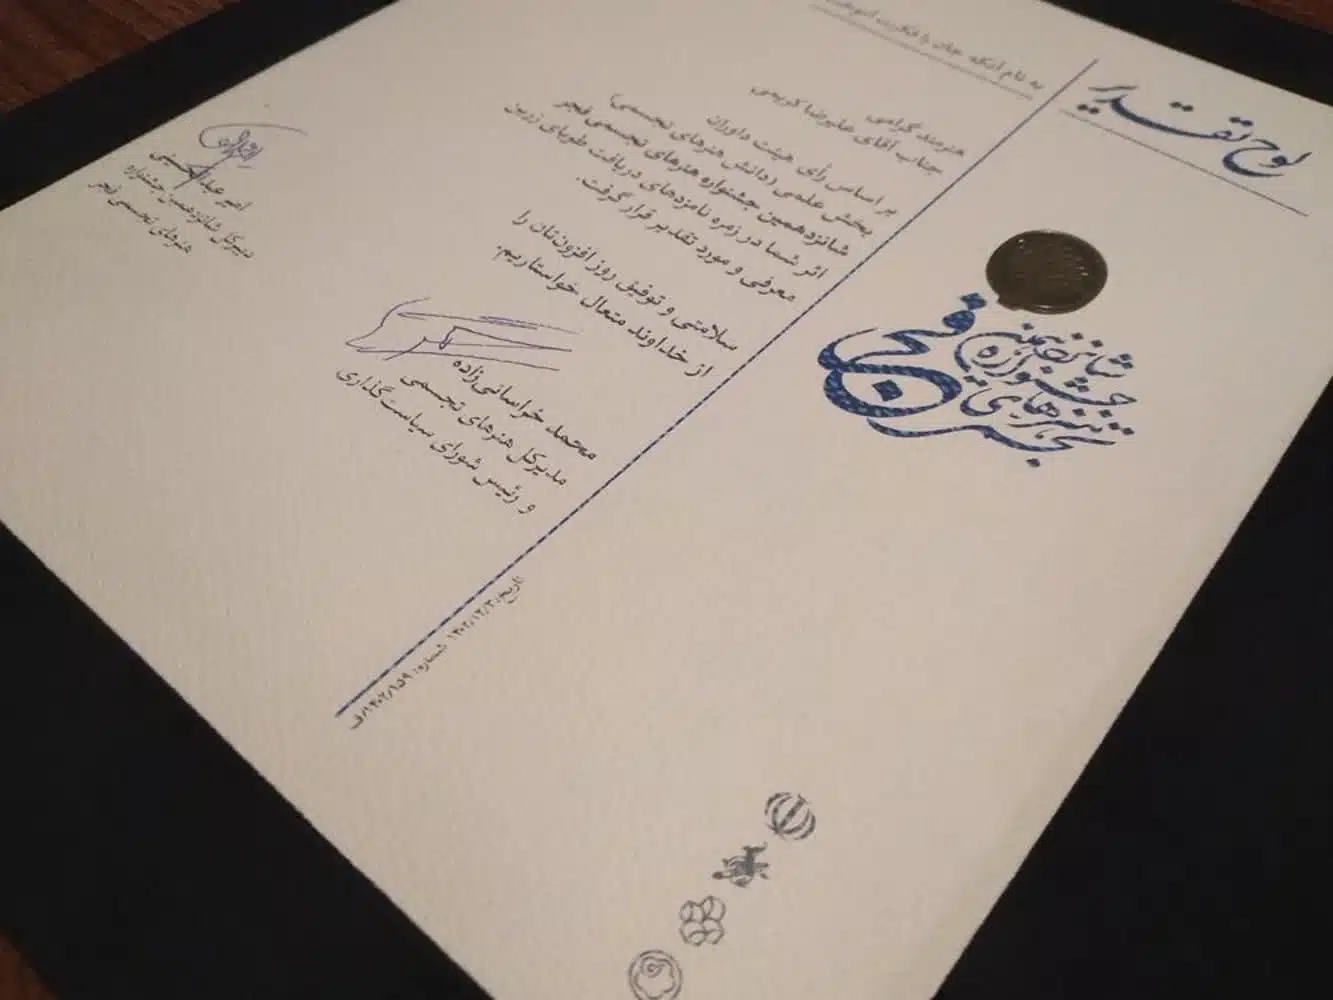 لوح تقدیر
شانزدهمین
جشنواره
هنرهای
تجسمی
فجر
به نام آنکه جان را فکرت آموخت
هنرمند گرامی
جناب آقای علیرضا کریمی
بر اساس رأی هیئت داوران
بخش علمی (دانش هنرهای تجسمی)
شانزدهمین جشنواره هنرهای تجسمی فجر
اثر شما در زمره نامزدهای دریافت طوبای زرین
معرفی و مورد تقدیر قرار گرفت.
سلامتی و توفیق روز افزون‌تان را
از خداوند متعال خواستاریم.
محمد خراسانی‌زاده
مدیرکل هنرهای تجسمی
و رئیس شورای سیاست‌گذاری
امیر عبدالحسینی
دبیرکل شانزدهمین جشنواره
هنرهای تجسمی فجر
تاریخ: ۱۴۰۲/۱۲/۲ شماره: